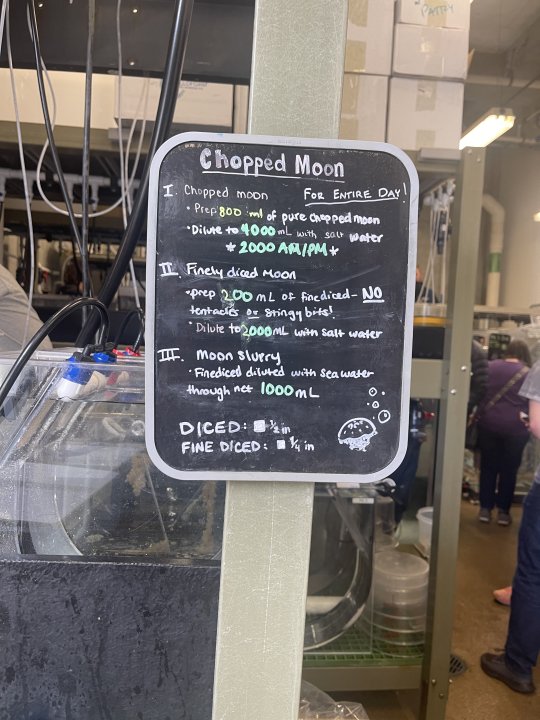 PATTY
Chopped Moon
I. Chopped moon FOR ENTIRE DAY!
• Prep 800 ml of pure chopped moon
• Dilute to 4000 mL with salt water
* 2000 AM/PM *
II. Finely diced Moon
• prep 200 mL of fine diced - NO
tentacles or stringy bits!
• Dilute to 2000 mL with salt water
III. Moon Slurry
• Finediced diluted with sea water
through net 1000 mL
DICED: 1/2 in
FINE DICED: 1/4 in